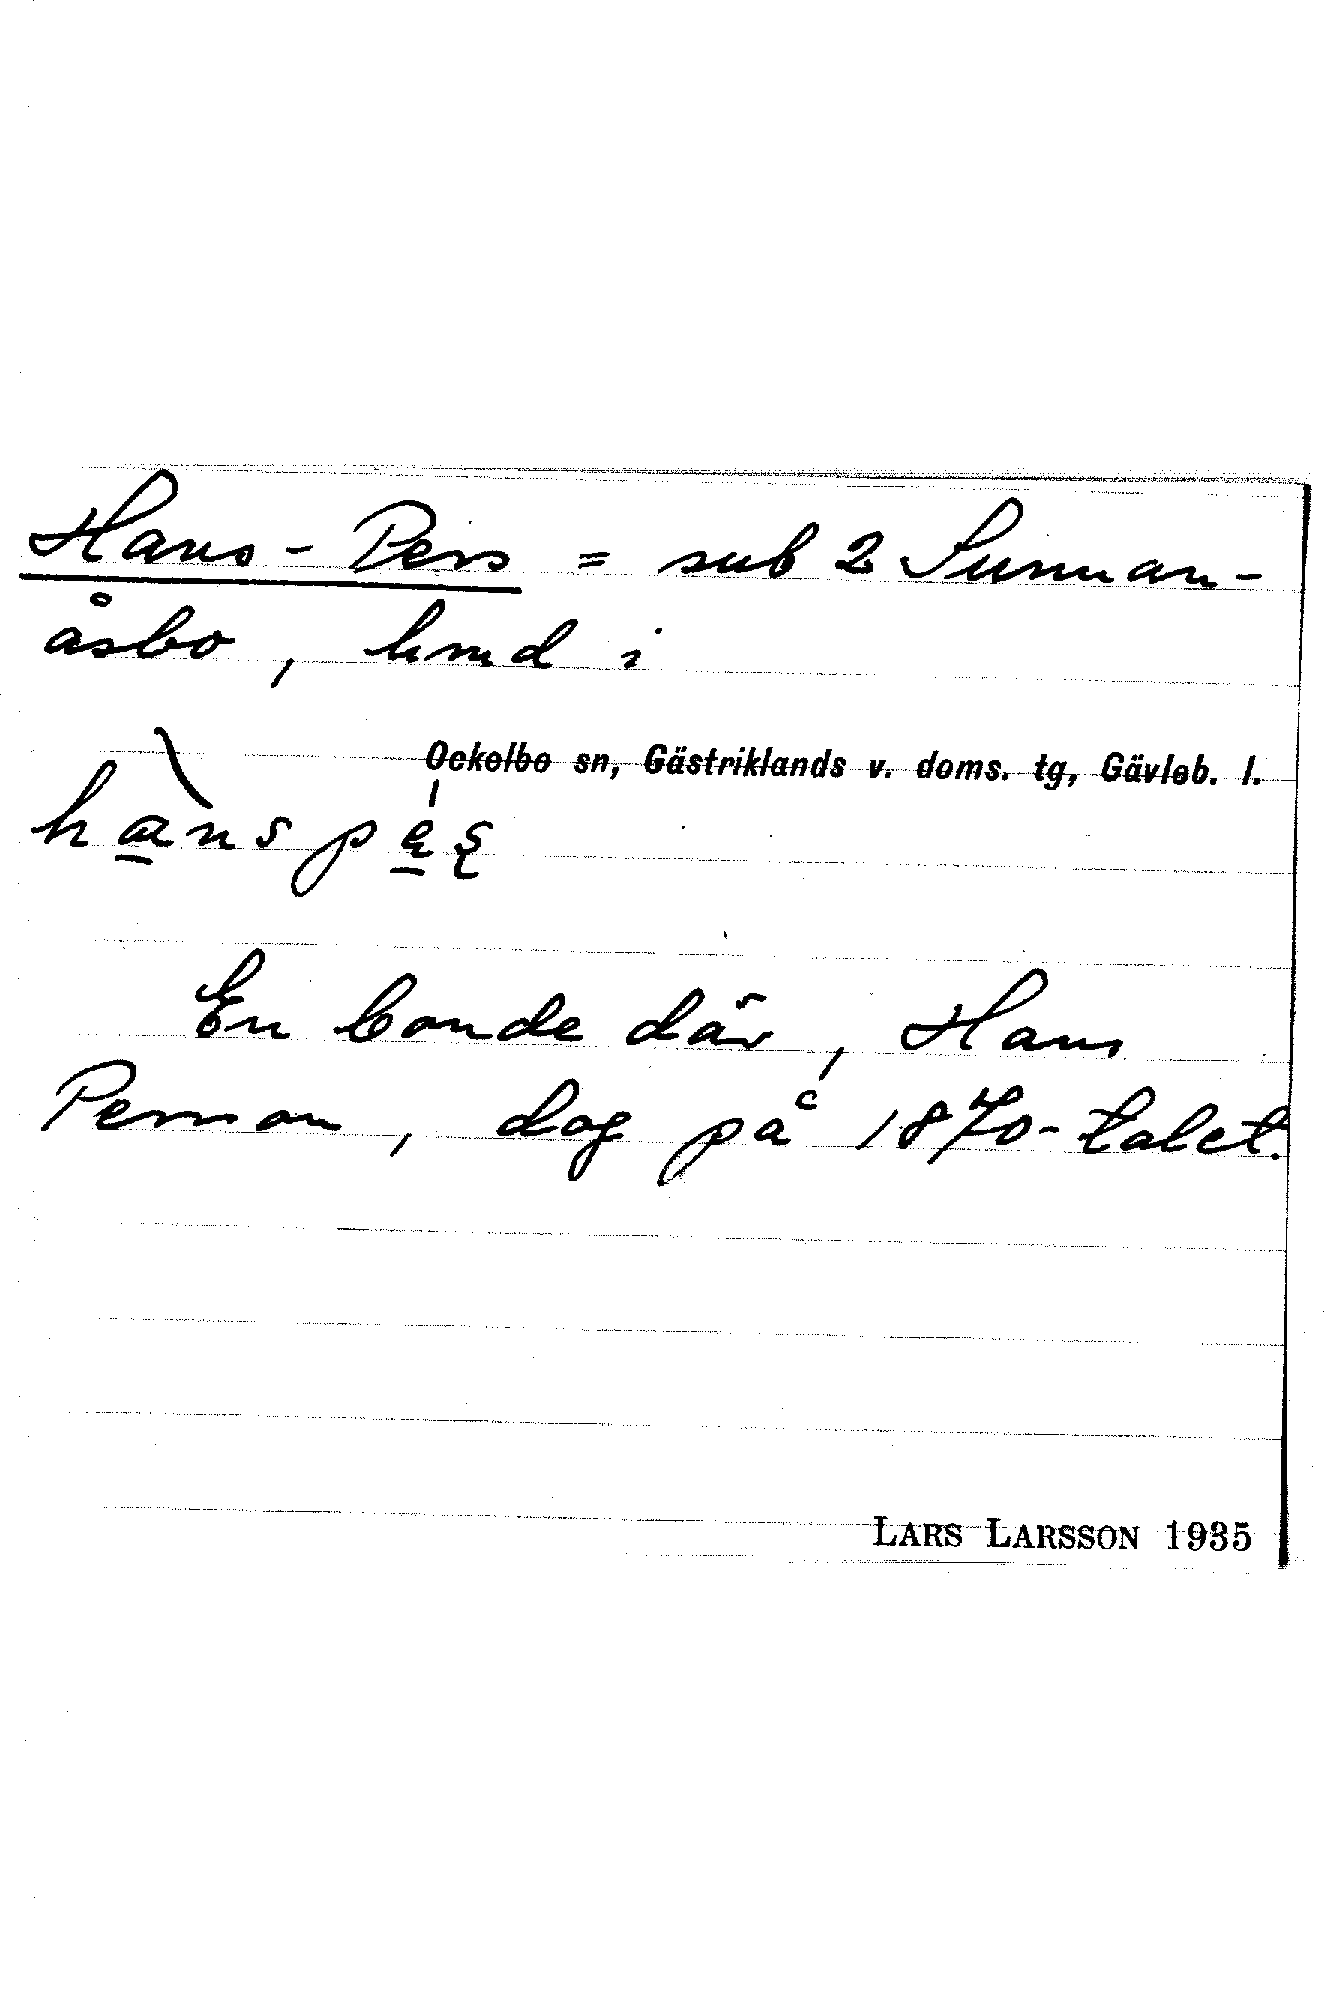 Hans-Pers = sub 2 Sunnan-
åsbo, hmd i
Ockelbo sn, Gästriklands v. doms. tg, Gävleb. l.
En bonde där, Hans
Persson, dog på 1870-talet.
LARS LARSSON 1935